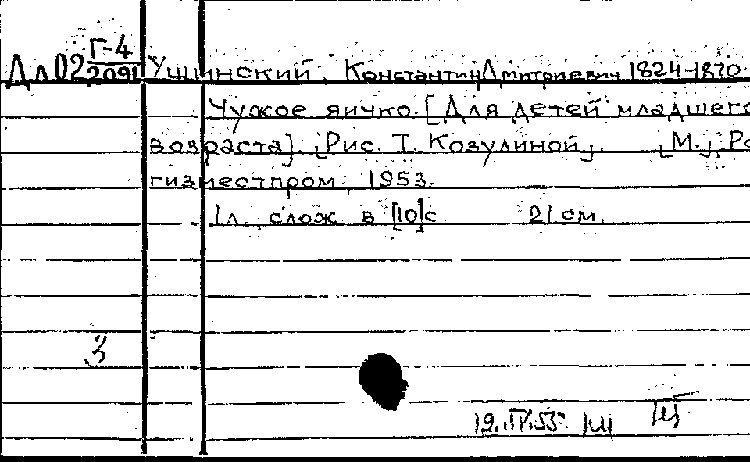 Дл02 Г-4/2091 Ушинский, Константин Дмитриевич 1824-1870
Чужое яичко. [Для детей младшего
возраста]. [Рис. Т. Козулиной]. [М.], Ро
гизместпром, 1953.
1 л. слож. в [10] с 21 см.
3
19.IV.55